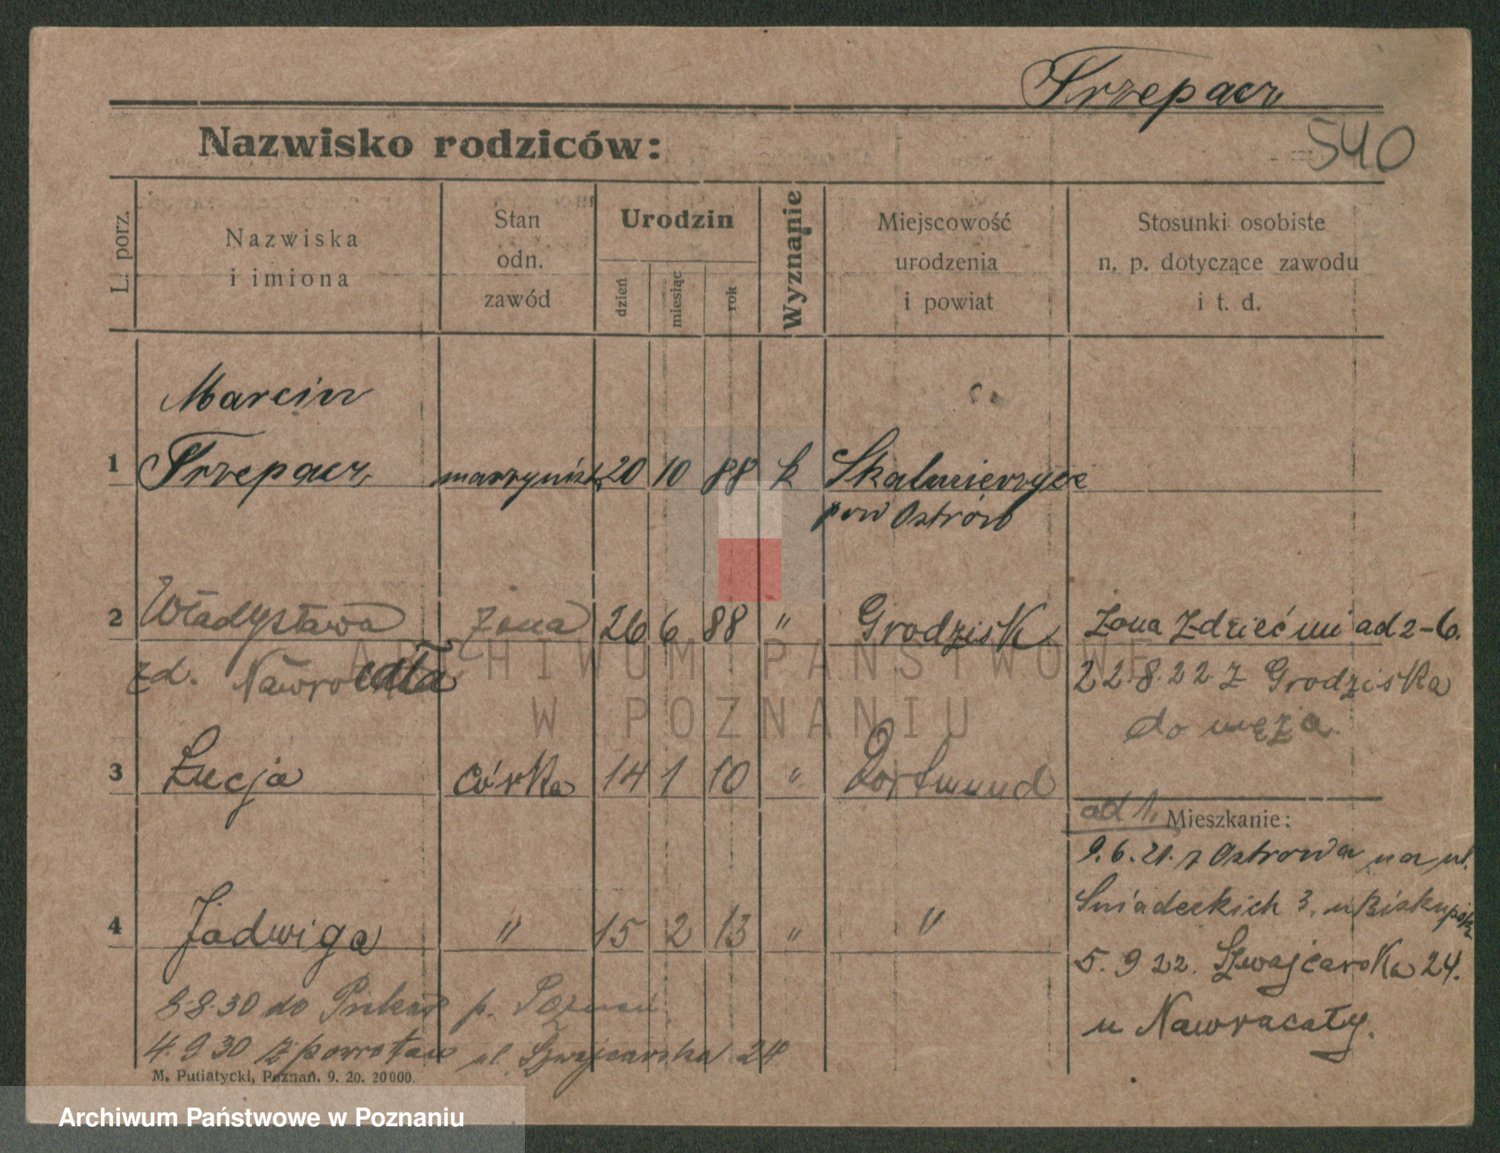 Trzepacz
540
Nazwisko rodziców:
L. porz.
Nazwiska
i imiona
Stan
odn.
zawód
Urodzin
dzień
miesiąc
rok
Wyznanie
Miejscowość
urodzenia
i powiat
Stosunki osobiste
n. p. dotyczące zawodu
i t. d.
Marcin
1 Trzepacz, maszynist. 20 10 88 k Skalmierzyce
pow Ostrów
2 Władysława żona 26 6 88 " Grodzisk Żona z dziećmi ad 2-6.
zd. 22.8.22 z Grodziska
do męża.
3 Łucja córka 14 1 10 " Dortmund
ad 1. Mieszkanie:
9.6.21. z Ostrowa na ul.
Śniadeckich 3. u
4 Jadwiga " 15 2 13 " "
5.9 22. Szwajcarska 24.
u Nawrocały.
8-8-30 do p. Poznań.
4.9 30 z powrotem ul. Szwajcarska 24
M. Putiatycki, Poznań. 9. 20. 20000.
ARCHIWUM PAŃSTWOWE
W POZNANIU
Archiwum Państwowe w Poznaniu